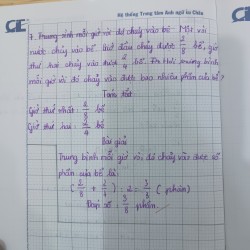 CIE
Hệ thống Trung tâm Anh ngữ Á Châu
7. Trung bình mỗi giờ vòi đó chảy vào bể
nước chảy vào bể. Giờ đầu chảy được 2/8 bể, giờ
thứ hai chảy vào được 2/4 bể. Hỏi trung bình
mỗi giờ vòi đó chảy vào được bao nhiêu phần của bể?
Tóm tắt
Giờ thứ nhất: 2/8 bể
Giờ thứ hai: 2/4 bể
Bài giải
Trung bình mỗi giờ vòi đó chảy vào được số
phần của bể là:
(2/8 + 2/4) : 2 = 3/8 (phần)
Đáp số: 3/8 phần.